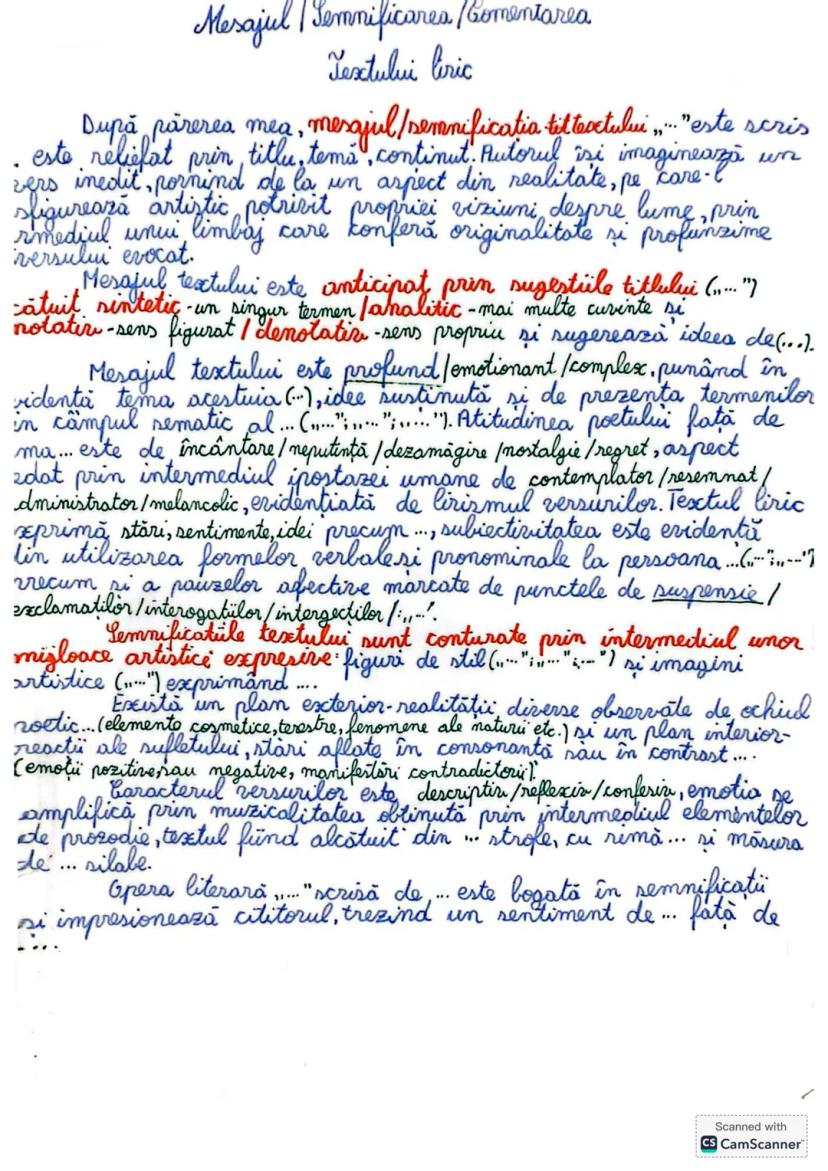 Mesajul / Semnificarea / Comentarea
Textului liric
După părerea mea, mesajul/semnificația titltextului „..." este scris
. este reliefat prin titlu, temă, conținut. Autorul își imaginează un
vers inedit, pornind de la un aspect din realitate, pe care-l
sfigurează artistic potrivit propriei viziuni despre lume, prin
rmediul unui limbaj care konferă originalitate și profunzime
versului evocat.
Mesajul textului este anticipat prin sugestiile titlului („...")
cătuit sintetic - un singur termen / analitic - mai multe cuvinte și
notativ - sens figurat / denotativ - sens propriu și sugerează ideea de (...).
Mesajul textului este profund / emoționant / complex, punând în
vidență tema acestuia (...), idee susținută și de prezența termenilor
in câmpul sematic al ... („..."; „..."; „..."). Atitudinea poetului față de
ma... este de încântare / neputință / dezamăgire / nostalgie / regret, aspect
edat prin intermediul ipostazei umane de contemplator / resemnat /
dministrator / melancolic, evidențiată de lirismul versurilor. Textul liric
xprimă stări, sentimente, idei precum ..., subiectivitatea este evidentă
din utilizarea formelor verbale și pronominale la persoana ... („..."; „...")
precum și a pauzelor afective marcate de punctele de suspensie /
exclamațiilor / interogațiilor / intergecțiilor / : „...".
Semnificațiile textului sunt conturate prin intermediul unor
migloace artistice expresive: figuri de stil („..."; „..."; „...") și imagini
artistice („...") exprimând ....
Există un plan exterior - realității diverse observate de ochiul
poetic ... (elemente cosmetice, terestre, fenomene ale naturii etc.) și un plan interior -
reacții ale sufletului, stări aflate în consonanță sau în contrast ....
(emoții pozitive sau negative, manifestări contradictorii).
Caracterul versurilor este descriptiv / reflexiv / confesiv, emoția se
amplifică prin muzicalitatea obținută prin intermediul elementelor
de prozodie, textul fiind alcătuit din ... strofe, cu rimă ... și măsura
de ... silabe.
Opera literară „..." scrisă de ... este bogată în semnificații
și impresionează cititorul, trezind un sentiment de ... față de
....
Scanned with
CS CamScanner